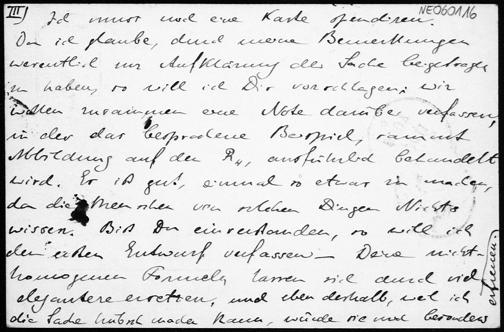 III) NE060116
Ich muss noch eine Karte spendieren.
Da ich glaube, durch meine Bemerkungen
wesentlich zur Aufklärung der Sache beigetragen
zu haben, so will ich Dir vorschlagen, wir
wollen zusammen eine Note darüber verfassen,
in der das besprochene Beispiel, samt
Abbildung auf den R4, ausführlich behandelt
wird. Es ist gut, einmal so etwas zu machen,
da die Menschen von solchen Dingen Nichts
wissen. Bist Du einverstanden, so will ich
den ersten Entwurf verfassen. Deine nicht-
homogenen Formeln lassen sich durch viel
elegantere ersetzen, und eben deshalb, weil ich
die Sache hübsch machen kann, würde sie mich besonders
erfreuen.